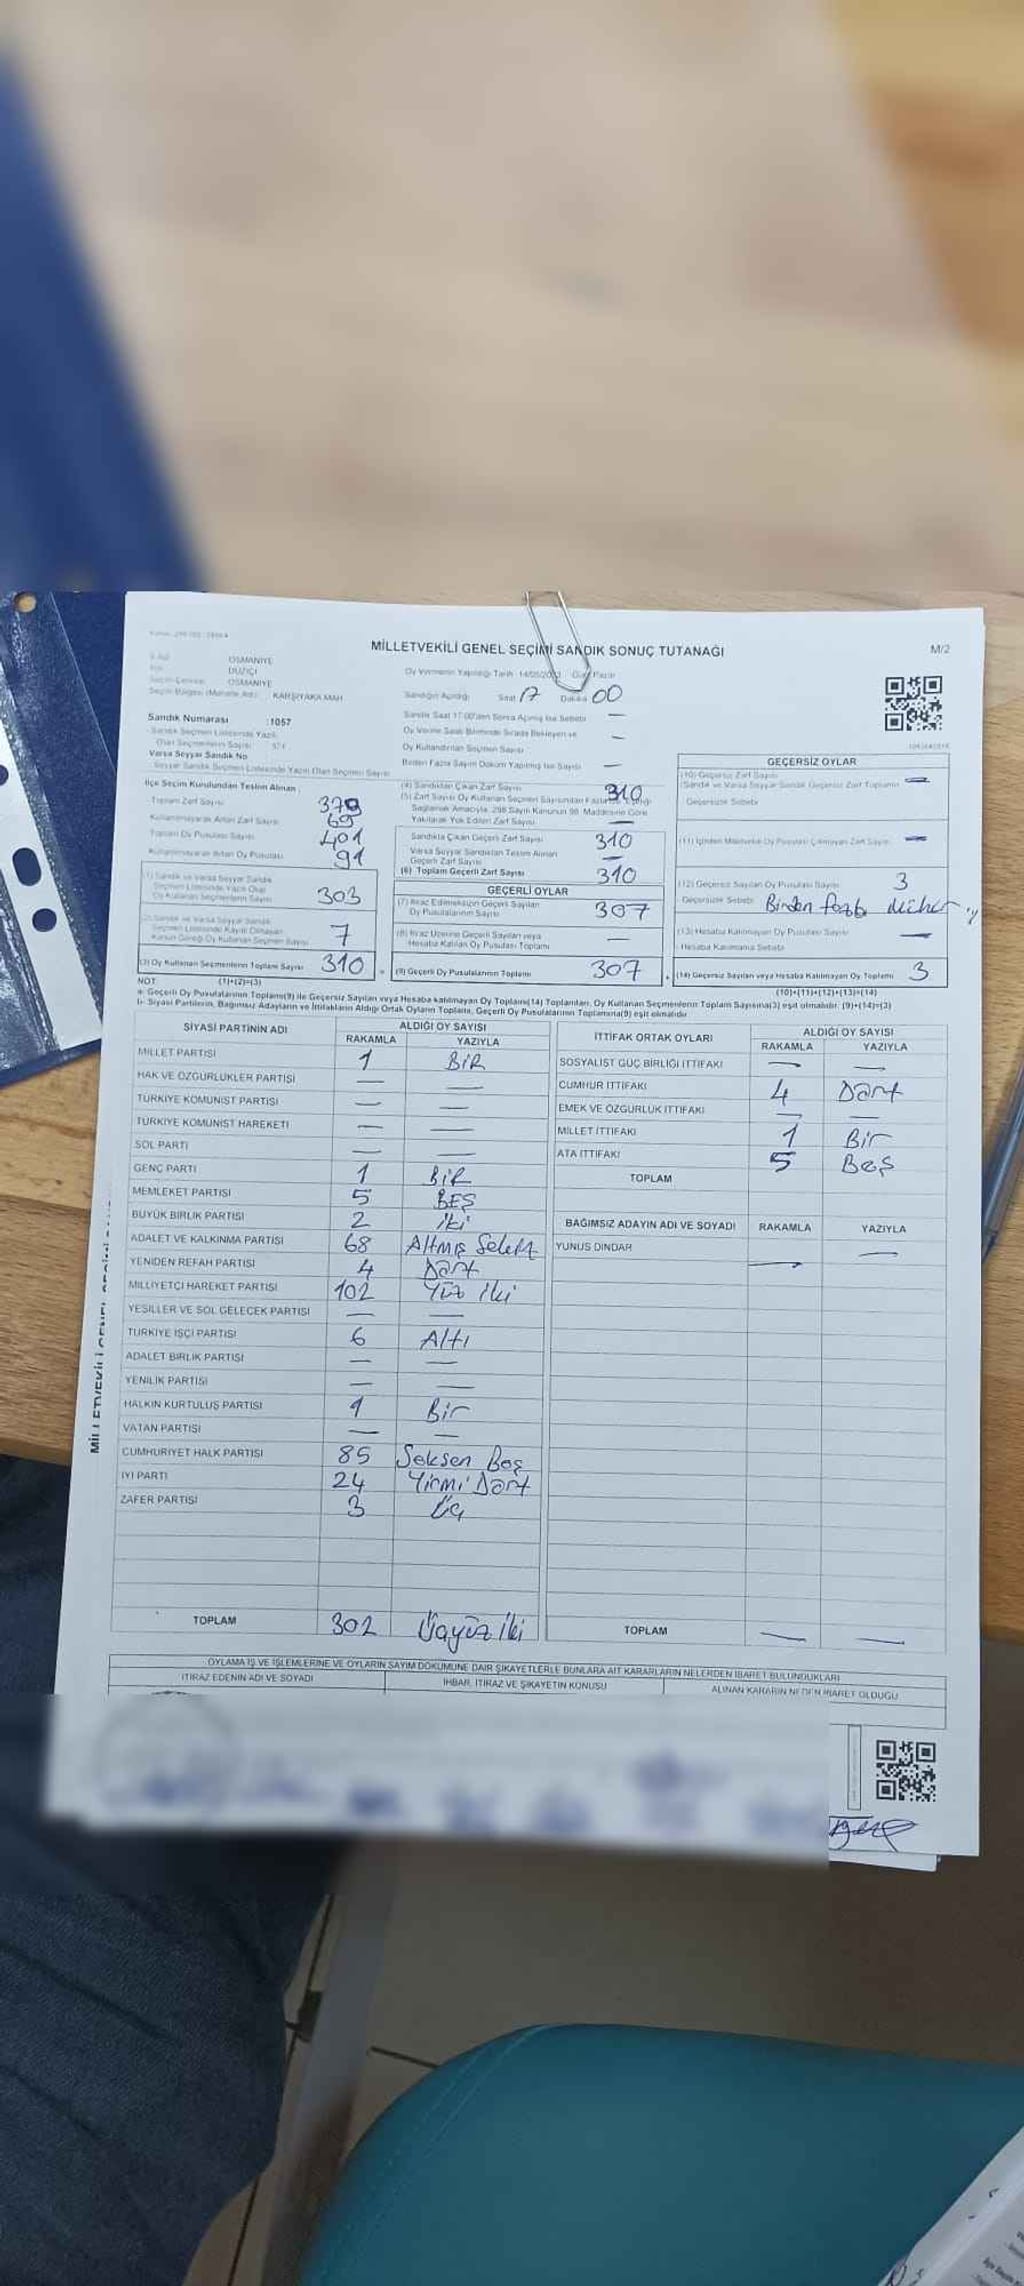 MİLLETVEKİLİ GENEL SEÇİMİ SANDIK SONUÇ TUTANAĞI
M/2
OSMANİYE
DÜZİÇİ
OSMANİYE
Seçim Bölgesi (Mahalle Adı) : KARŞIYAKA MAH
Sandık Numarası :1057
Sandık Seçmen Listesinde Yazılı
Olan Seçmenlerin Sayısı
Varsa Seyyar Sandık No
Seyyar Sandık Seçmen Listesinde Yazılı Olan Seçmen Sayısı
Oy Vermenin Yapıldığı Tarih : 14/05/2023 Gün Pazar
Sandığın Açıldığı Saat 17 Dakika 00
Sandık Saat 17.00'den Sonra Açılmış İse Sebebi —
Oy Verme Saati Bitiminde Sırada Bekleyen ve
Oy Kullandırılan Seçmen Sayısı —
Birden Fazla Sayım Döküm Yapılmış İse Sayısı —
İlçe Seçim Kurulundan Teslim Alınan :
Toplam Zarf Sayısı 379
Kullanılmayarak Artan Zarf Sayısı 69
Toplam Oy Pusulası Sayısı 401
Kullanılmayarak Artan Oy Pusulası 91
(1) Sandık ve Varsa Seyyar Sandık
Seçmen Listesinde Yazılı Olan
Oy Kullanan Seçmenlerin Sayısı 303
(2) Sandık ve Varsa Seyyar Sandık
Seçmen Listesinde Kayıtlı Olmayan
Kanun Gereği Oy Kullanan Seçmen Sayısı 7
(3) Oy Kullanan Seçmenlerin Toplam Sayısı 310
NOT (1)+(2)=(3)
(4) Sandıktan Çıkan Zarf Sayısı 310
(5) Zarf Sayısı Oy Kullanan Seçmen Sayısından Fazla İse Eşitliği
Sağlamak Amacıyla, 298 Sayılı Kanunun 98. Maddesine Göre
Yakılarak Yok Edilen Zarf Sayısı —
Sandıkta Çıkan Geçerli Zarf Sayısı 310
Varsa Seyyar Sandıktan Teslim Alınan
Geçerli Zarf Sayısı —
(6) Toplam Geçerli Zarf Sayısı 310
GEÇERLİ OYLAR
(7) İtiraz Edilmeksizin Geçerli Sayılan
Oy Pusulalarının Sayısı 307
(8) İtiraz Üzerine Geçerli Sayılan veya
Hesaba Katılan Oy Pusulası Toplamı —
(9) Geçerli Oy Pusulalarının Toplamı 307
GEÇERSİZ OYLAR
(10) Geçersiz Zarf Sayısı
(Sandık ve Varsa Seyyar Sandık Geçersiz Zarf Toplamı) —
Geçersizlik Sebebi
(11) İçinden Milletvekili Oy Pusulası Çıkmayan Zarf Sayısı —
(12) Geçersiz Sayılan Oy Pusulası Sayısı 3
Geçersizlik Sebebi Birden fazla mühür
(13) Hesaba Katılmayan Oy Pusulası Sayısı —
Hesaba Katılmama Sebebi
(14) Geçersiz Sayılan veya Hesaba Katılmayan Oy Toplamı 3
(10)+(11)+(12)+(13)=(14)
a- Geçerli Oy Pusulalarının Toplamı(9) ile Geçersiz Sayılan veya Hesaba katılmayan Oy Toplamı(14) Toplamları, Oy Kullanan Seçmenlerin Toplam Sayısına(3) eşit olmalıdır. (9)+(14)=(3)
b- Siyasi Partilerin, Bağımsız Adayların ve İttifakların Aldığı Ortak Oyların Toplamı, Geçerli Oy Pusulalarının Toplamına(9) eşit olmalıdır
SİYASİ PARTİNİN ADI ALDIĞI OY SAYISI
RAKAMLA YAZIYLA
MİLLET PARTİSİ 1 BİR
HAK VE ÖZGÜRLÜKLER PARTİSİ — —
TÜRKİYE KOMÜNİST PARTİSİ — —
TÜRKİYE KOMÜNİST HAREKETİ — —
SOL PARTİ — —
GENÇ PARTİ 1 BİR
MEMLEKET PARTİSİ 5 BEŞ
BÜYÜK BİRLİK PARTİSİ 2 İki
ADALET VE KALKINMA PARTİSİ 68 Altmış Sekiz
YENİDEN REFAH PARTİSİ 4 Dört
MİLLİYETÇİ HAREKET PARTİSİ 102 Yüz İki
YEŞİLLER VE SOL GELECEK PARTİSİ — —
TÜRKİYE İŞÇİ PARTİSİ 6 Altı
ADALET BİRLİK PARTİSİ — —
YENİLİK PARTİSİ — —
HALKIN KURTULUŞ PARTİSİ 1 Bir
VATAN PARTİSİ — —
CUMHURİYET HALK PARTİSİ 85 Seksen Beş
İYİ PARTİ 24 Yirmi Dört
ZAFER PARTİSİ 3 Üç
TOPLAM 302 Üçyüz iki
İTTİFAK ORTAK OYLARI ALDIĞI OY SAYISI
RAKAMLA YAZIYLA
SOSYALİST GÜÇ BİRLİĞİ İTTİFAKI — —
CUMHUR İTTİFAKI 4 Dört
EMEK VE ÖZGÜRLÜK İTTİFAKI — —
MİLLET İTTİFAKI 1 Bir
ATA İTTİFAKI 5 Beş
TOPLAM
BAĞIMSIZ ADAYIN ADI VE SOYADI RAKAMLA YAZIYLA
YUNUS DİNDAR — —
TOPLAM — —
OYLAMA İŞ VE İŞLEMLERİNE VE OYLARIN SAYIM DÖKÜMÜNE DAİR ŞİKAYETLERLE BUNLARA AİT KARARLARIN NELERDEN İBARET BULUNDUKLARI
İTİRAZ EDENİN ADI VE SOYADI İHBAR, İTİRAZ VE ŞİKAYETİN KONUSU ALINAN KARARIN NEDEN İBARET OLDUĞU